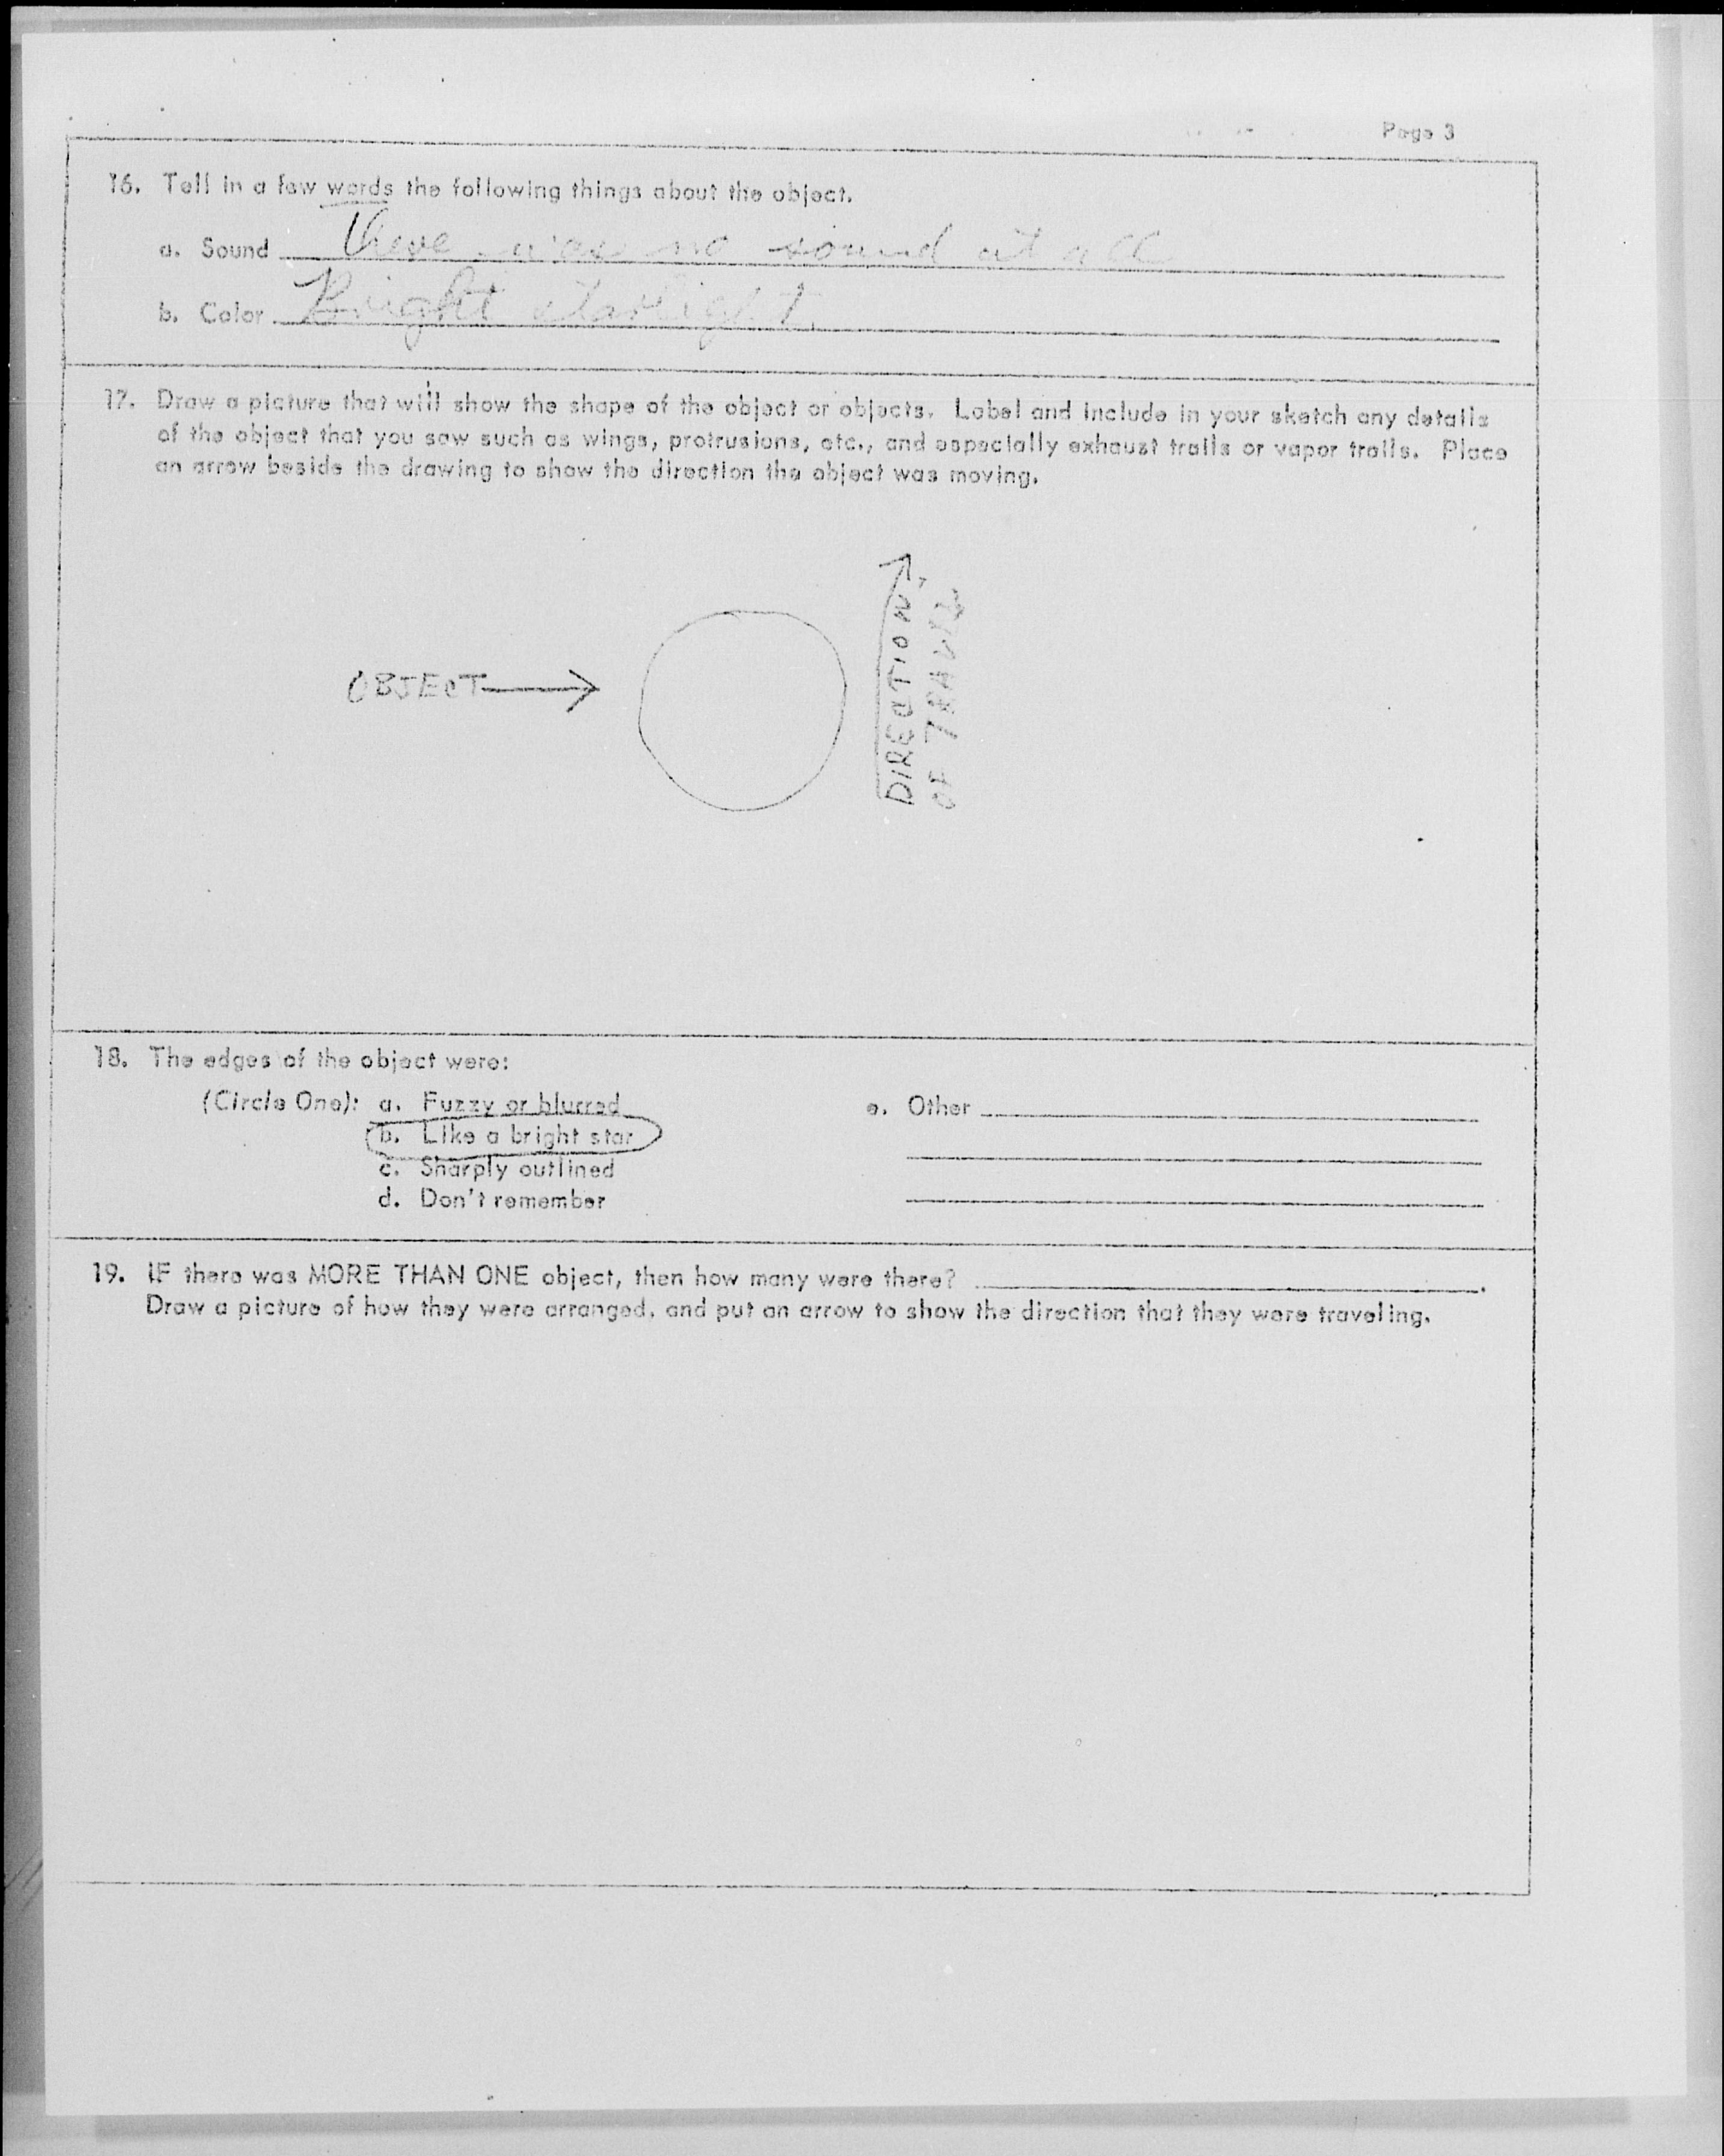 Page 3
16. Tell in a few words the following things about the object.
a. Sound There was no sound at all
b. Color Bright starlight.
17. Draw a picture that will show the shape of the object or objects. Label and include in your sketch any details
of the object that you saw such as wings, protrusions, etc., and especially exhaust trails or vapor trails. Place
an arrow beside the drawing to show the direction the object was moving.
OBJECT
DIRECTION
OF TRAVEL
18. The edges of the object were:
(Circle One): a. Fuzzy or blurred
b. Like a bright star
c. Sharply outlined
d. Don't remember
e. Other
19. IF there was MORE THAN ONE object, then how many were there?
Draw a picture of how they were arranged, and put an arrow to show the direction that they were traveling.